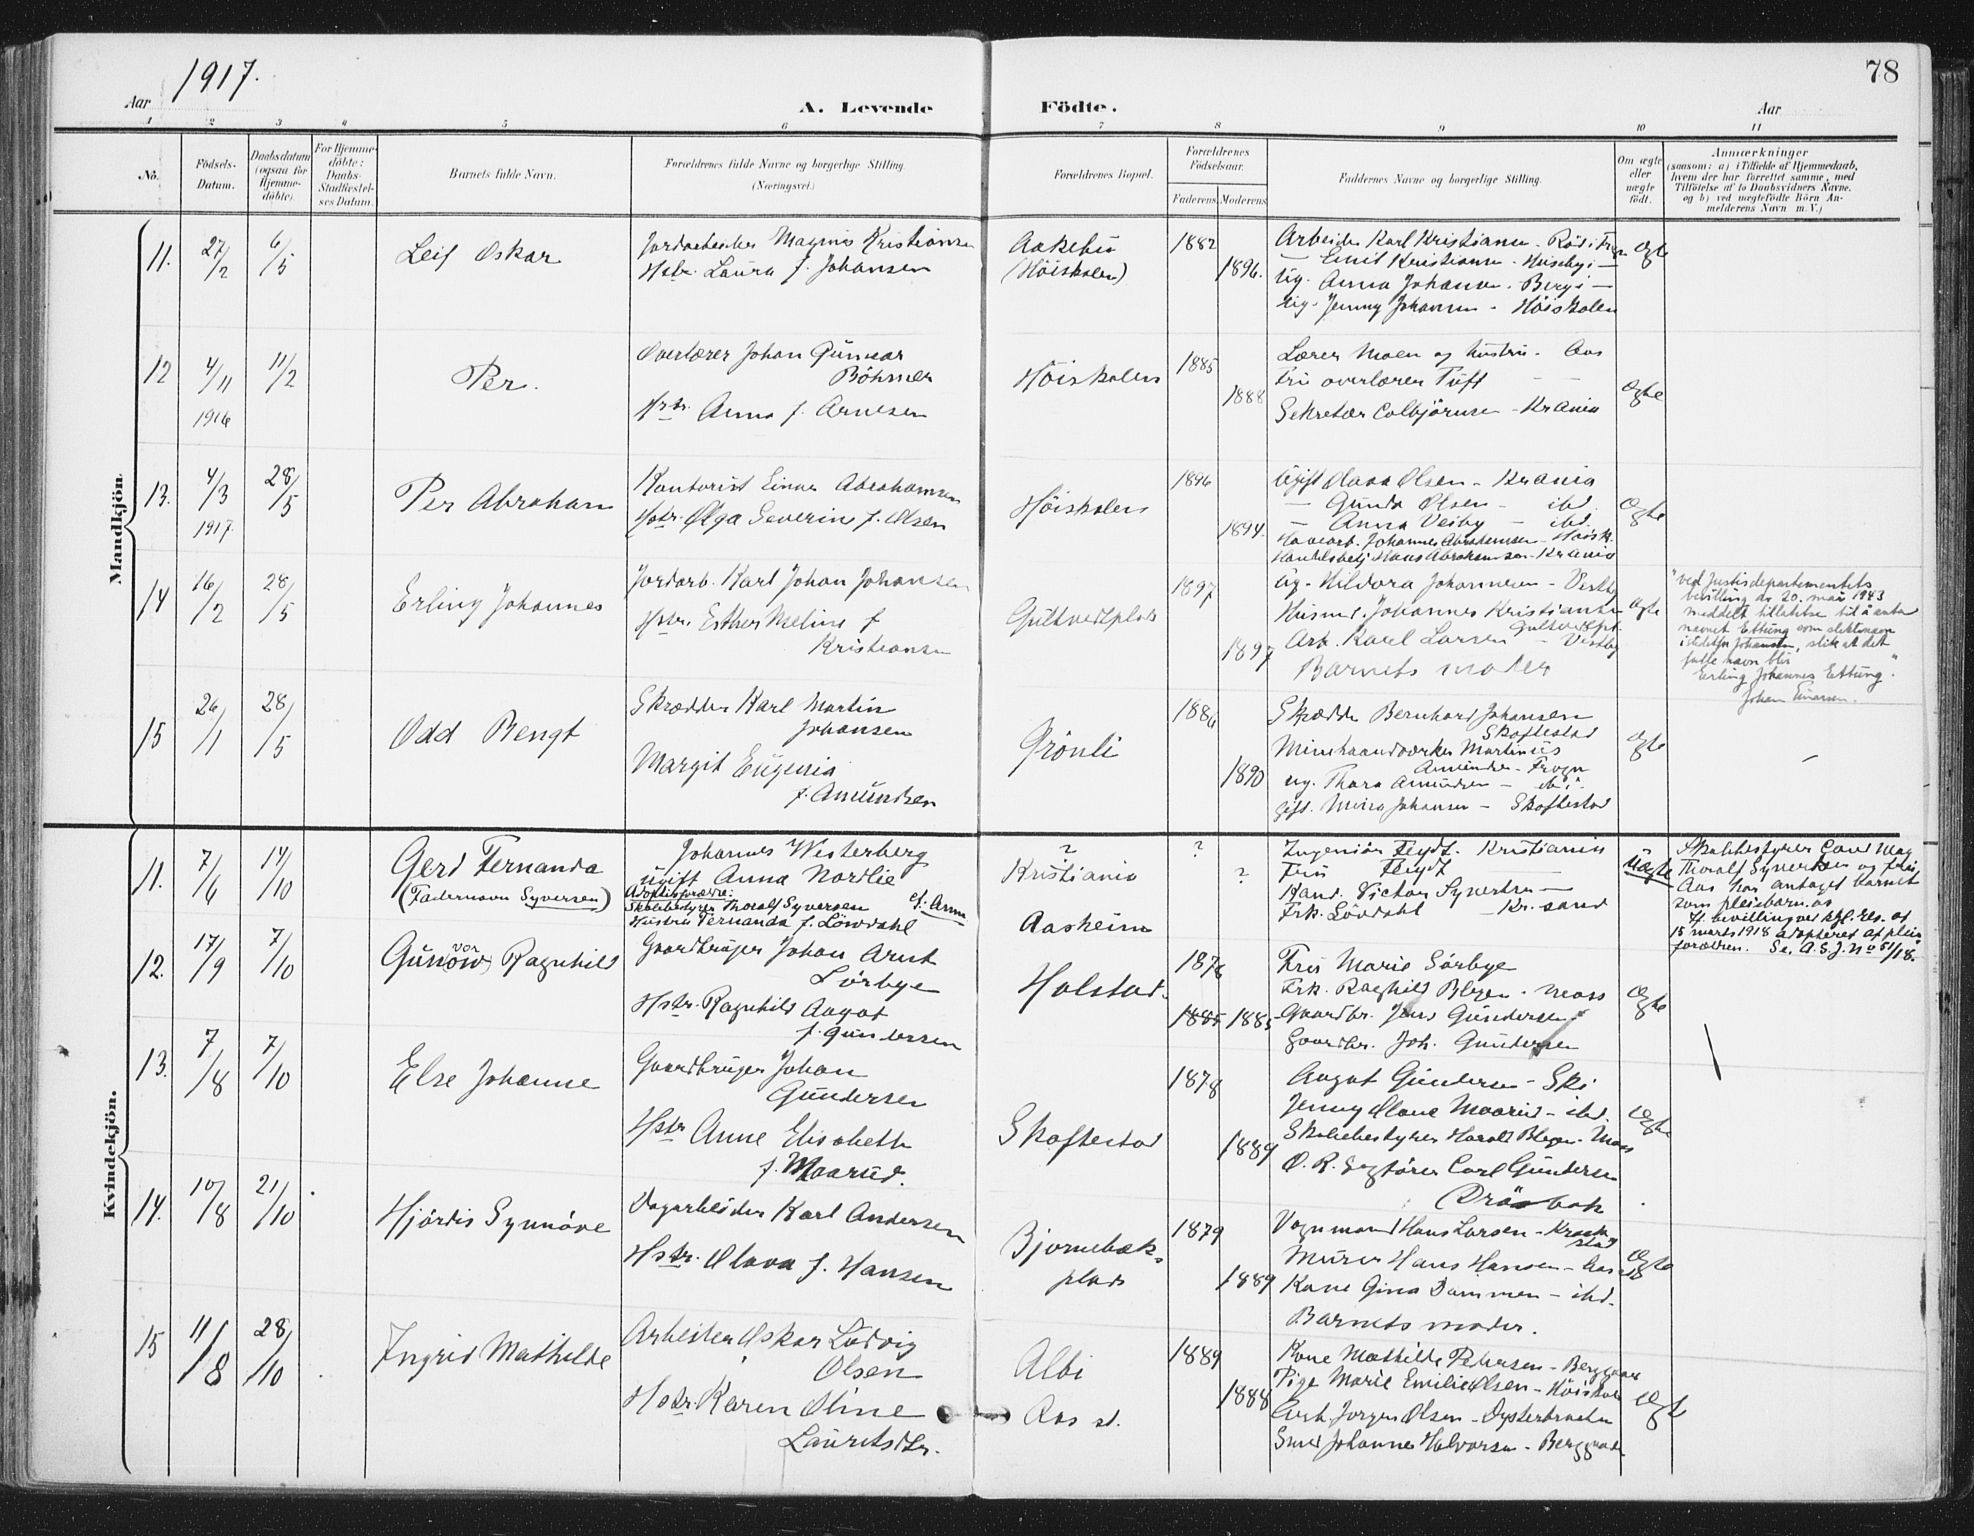 1917.
78
Aar
A. Levende
Födte.
Aar
1 2 3 4 5 6 7 8 9 10 11
No.
Födsels-
Datum.
Daabsdatum
(ogsaa for
Hjemme-
döbte).
For Hjemme-
döbte:
Daabs-
Stadfæstel-
ses Datum.
Barnets fulde Navn.
Forældrenes fulde Navne og borgerlige Stilling.
(Næringsvei.)
Forældrenes Bopæl.
Forældrenes
Födselsaar.
Faderens.
Moderens.
Faddernes Navne og borgerlige Stilling.
Om ægte
eller
uægte
født.
Anmærkninger
(saasom: a) i Tilfælde af Hjemmedaab,
hvem der har forrettet samme, med
Tilföielse af to Daabsvidners Navne.
og b) ved uægtefödte Börn An-
melderens Navn m. V.)
Mandkjön.
11.
27/2
6/5
Leif Oskar
Magnus Kristiansen
Hstr. Laura f. Johansen
Aakebu
(Höiskolen)
1882
1896.
Arbeider Karl Kristiansen - Röd i Frogn
— Emil Kristiansen - Huseby i —
Ug. Anna Johansen - Berg i —
Ug. Jenny Johansen - Höiskolen
Ægte
12
4/11
1916
11/2
Per.
Overlærer Johan Gunnar
Böhmer
Hstr. Anna f. Arnesen
Höiskolen
1885
1888
Lærer Moen og hustru - Aas
Fru overlærer Tuft — —
Sekretær Colbjörnsen - Krania
Ægte
13.
4/3
1917.
28/5
Per Abraham
Kontorist Einar Abrahamsen
Hstr. Olga Severine f. Olsen
Höiskolen
1896
1894.
Ugift Olava Olsen - Krania
— Gunda Olsen - ibd.
— Anna Veiby — ibd.
Havearb. Johannes Abrahamsen - Höisk.
Handelsbetj. Hans Abrahamsen - Krania
Ægte
14
16/2
28/5
Erling Johannes
Jordarb. Karl Johan Johansen
Hstr. Esther Meline f
Kristiansen
Gultvedtplads
1897
1897
Ug. Hildora Johannesen - Vestby
Husm. Johannes Kristiansen
Gultvedtpl.
Arb. Karl Larsen — Vestby
Barnets moder
Ægte
"ved Justisdepartementets
bevilling av 20. mai 1943
meddelt tillatelse til å anta
navnet Ettung som slektsnavn
istedetfor Johansen, slik at det
fulle navn blir
Erling Johannes Ettung."
Johan Einarsen.
15
26/1
28/5
Odd Bengt
Skrædder Karl Martin
Johansen
Margit Eugenia
f. Amundsen
Grönli
1886
1890
Skrædder Bernhard Johansen
Skoftestad
Minehaandverker Martinius
Amundsen - Frogn
Ug. Thora Amundsen — ib.
gift. Johansen — Skoftestad
Ægte
Kvindekjön.
11.
7/6
14/10
Gerd Fernanda
(Fadernavn Syversen)
Johannes Westerberg
ugift Anna Nordlie
Adoptivforældre:
Skolebestyrer Thoralf Syversen
Hustru Fernanda f. Löwdahl
cf. Anm
?
Kristiania
Aasheim
?
?
Ingeniör Flydt. Kristiania
Fru Flydt —
Kand. Victor Syvertsen —
Frk. Lövdahl Kr.sand
Uægte
Skolebestyrer Carl Mag
Thoralf Syvertsen og frue
Aas har antaget barnet
som pleiebarn og
bevilling ved kgl. res. af
15 marts 1918 adopteret af pleie
forældren. Se. A.S.J.No 51/18.
12.
17/9
7/10
Gunvor Ragnhild
Gaardbruger Johan Arnt
Sörbye
Hstr. Ragnhild Aagot
f. Gundersen
Holstad.
1876
1885
1885
Fru Marie Sörbye
Frk. Ragnhild Blegen - Moss
Gaardbr. Jens Gundersen
Gaardbr. Joh. Gundersen
Ægte
13.
7/8
7/10
Else Johanne
Gaardbruger Johan
Gundersen
Hstr Anne Elisabeth
f. Maarud.
Skoftestad
1878
1889
Aagot Gundersen - Ski
Jenny Olave Maarud - ibd.
Skolebestyrer Harald Blegen - Moss
O.R. Sagförer Carl Gundersen
Dröbak
Ægte
14.
10/8
21/10
Hjördis Synnöve
Dagarbeider Karl Andersen
Hstr. Olava f. Hansen
Bjornebæk-
plads
1879
1889
Vognmand Hans Larsen - Kraakstad
Murer Hans Hansen - Aas
Kone Gina Dammen - ibd.
Barnets moder.
Ægte
15
11/8
28/10
Ingrid Mathilde
Arbeider Oskar Ludvig
Olsen
Hstr. Karen Oline
Lauritsdtr.
Albi
Aas st.
1889
1888
Kone Mathilde Petersen - Berggaard
Pige Marie Emilie Olsen - Höiskole
Jorgen Olsen - Dysterbraaten
Smed Johannes Halvorsen - Berggaard
Ægte